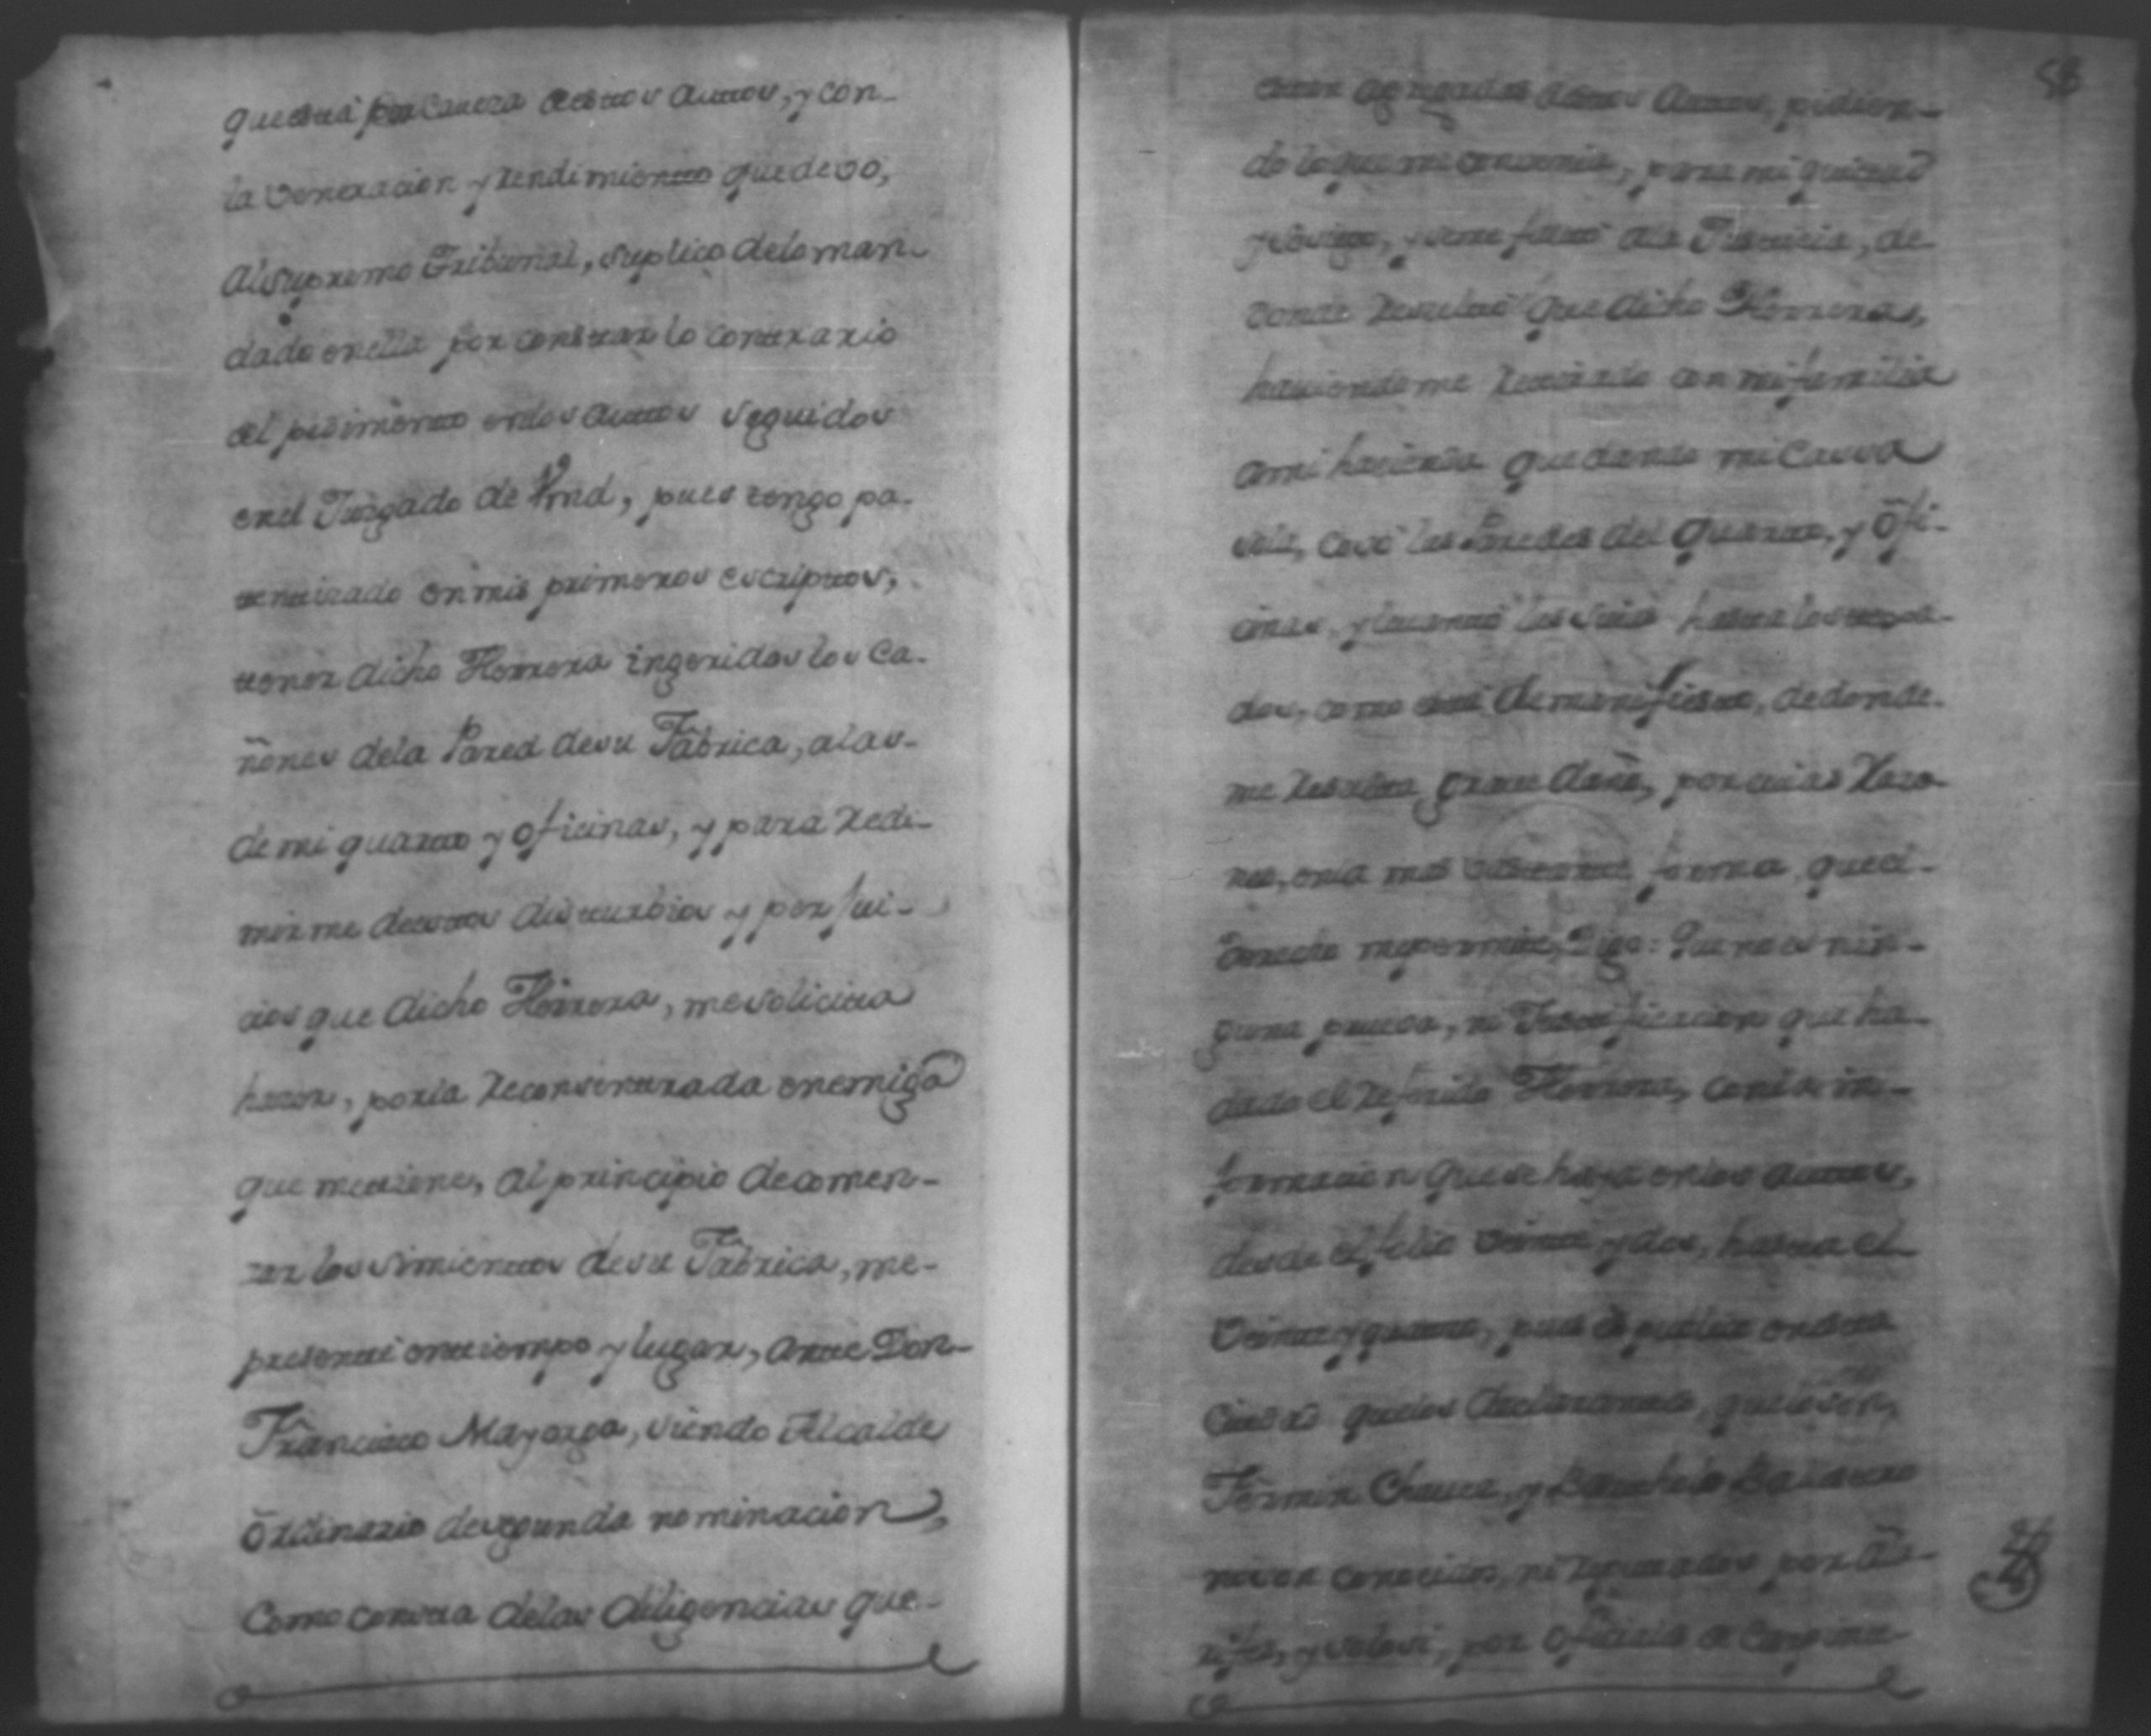 que está por Caveza destos auttos, y con-
la Veneracion y rendimientto que devo,
al Supremo Tribunal, suplico delo man-
dado en ella por constrar lo conttrario
del pedimentto en los auttos seguidos
en el Juzgado de Vmd, pues tengo pa-
tenttizado en mis primeros escripttos,
ttener dicho Herrera ingeridos los Ca-
ñones dela Pared de su Fabrica, a las-
de mi quartto y oficinas, y para redi-
mirme de esttos distturbios y perjui-
cios que dicho Herrera, me solicitta
hacer, por la reconsenttrada enemiga
que me ttiene, al principio de comen-
zar los simienttos de su Fabrica, me-
presentté en ttiempo y lugar, antte Don-
Francisco Mayorga, siendo Alcalde
Ordinario de segunda nominacion,
Como constta delas diligencias que-
58
esttan agregadas a esttos Auttos, pidien-
do lo que me convenia, para mi quiettud
y me falttó a la Justticia, de
donde resulttó que dicho Herrera,
haciendome rettirado con mi familia
a mi hacienda quedando mi Caussa
las Paredes del Quartto, y Ofi-
cinas, y levanttó las suias hastta los
dos, como está de manifiestto, de donde
me resultta grave daño, por cuias Razo-
nes, en la mas forma que el-
Derecho me permitte, Digo: Que no es nin-
guna prueva, ni Justtificacion que ha
dado el referido Herrera, con la in-
formacion que se haya en los auttos,
desde el folio veintte y dos, hastta el
Veintte y quattro, pues es publico en estta
Ciudad que los declaranttes, que lo son,
Fermin Chaves, y
no son conocidos, ni reputtados por Ala-
rifes, y solo si, por oficiales de Carpintte-